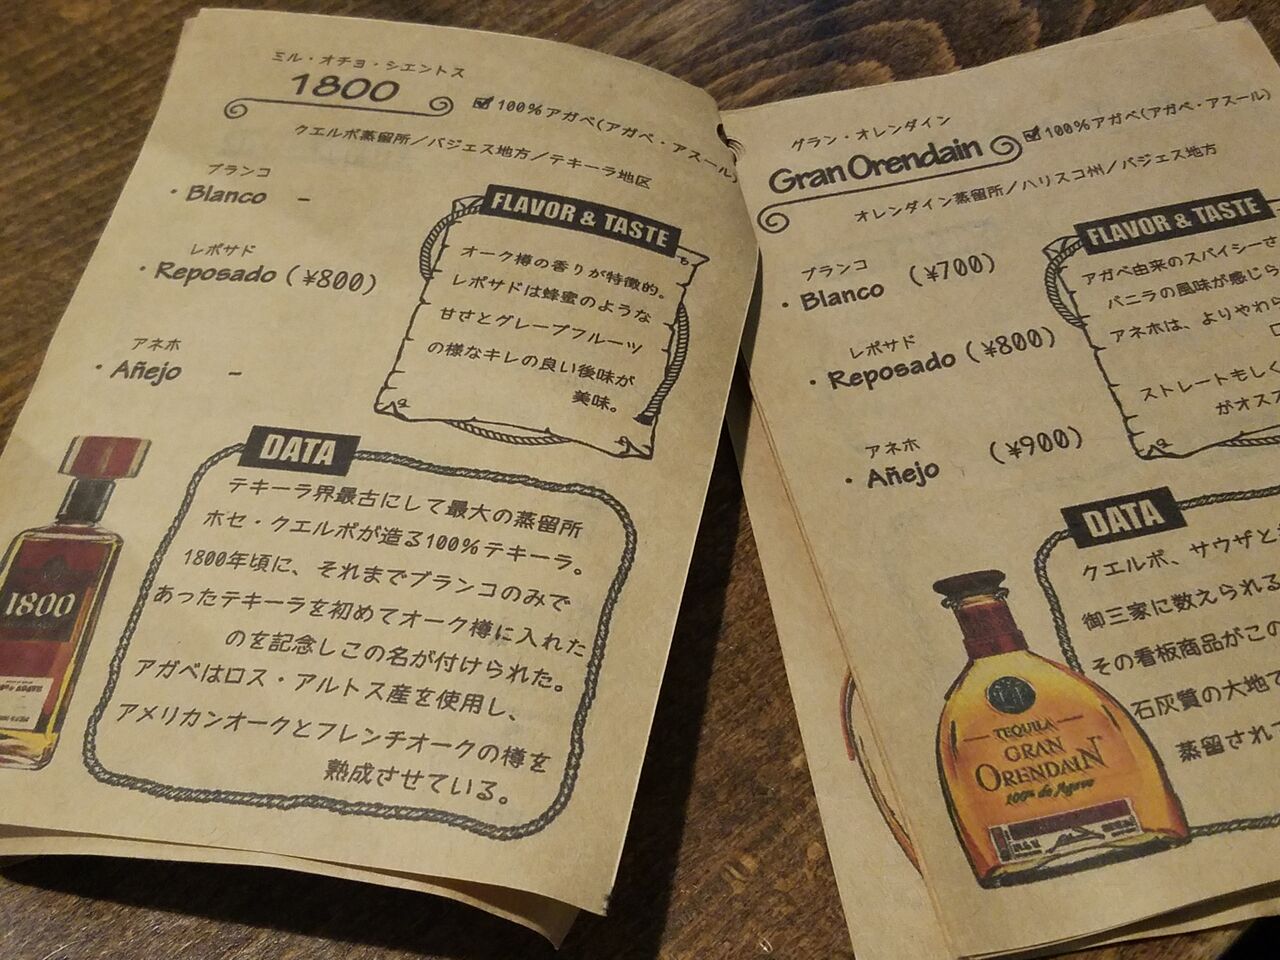 ミル・オチョ・シエントス
1800
☑100%アガベ(アガベ・アスール)
クエルボ蒸留所／バジェス地方／テキーラ地区
ブランコ
・Blanco －
レポサド
・Reposado (¥800)
アネホ
・Añejo －
FLAVOR & TASTE
オーク樽の香りが特徴的。
レポサドは蜂蜜のような
甘さとグレープフルーツ
の様なキレの良い後味が
美味。
DATA
テキーラ界最古にして最大の蒸留所
ホセ・クエルボが造る100%テキーラ。
1800年頃に、それまでブランコのみで
あったテキーラを初めてオーク樽に入れた
のを記念しこの名が付けられた。
アガベはロス・アルトス産を使用し、
アメリカンオークとフレンチオークの樽を
熟成させている。
1800
グラン・オレンダイン
Gran Orendain
☑100%アガベ(アガベ・アスール)
オレンダイン蒸留所／ハリスコ州／バジェス地方
ブランコ
・Blanco (¥700)
レポサド
・Reposado (¥800)
アネホ
・Añejo (¥900)
FLAVOR & TASTE
アガベ由来のスパイシーさ
バニラの風味が感じら
アネホは、よりやわら
ストレートもしく
がオス
DATA
クエルボ、サウザと
御三家に数えられる
その看板商品がこの
石灰質の大地で
蒸留されて
TEQUILA
GRAN
ORENDAIN
100% de Agave